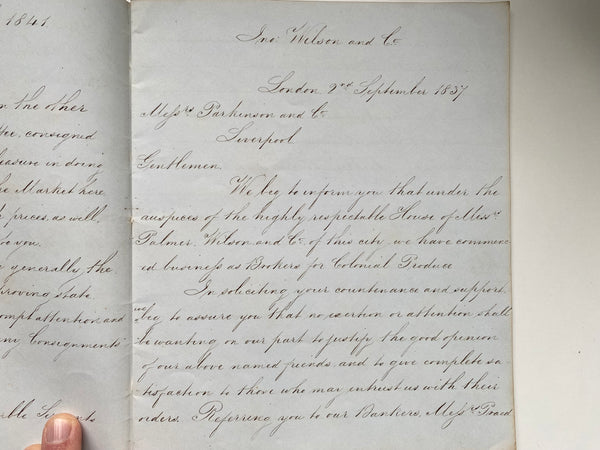 1841
n the other
ee, consigned
leasure in doing
he Market here
prices as well
ve you.
generally the
proving state
ompt attention and
ny Consignments
able Servants
Jno Wilson and Co
London 2nd September 1837
Messrs Parkinson and Co
Liverpool
Gentlemen.
We beg to inform you that under the
auspices of the highly respectable House of Messrs
Palmer, Wilson and Co. of this city, we have commenc-
ed business as Bookers for Colonial Produce
In soliciting your countenance and support,
we beg to assure you that no exertion or attention shall
be wanting on our part to justify the good opinion
of our above named friends, and to give complete sa-
tisfaction to those who may entrust us with their
orders. Referring you to our Bankers, Messrs